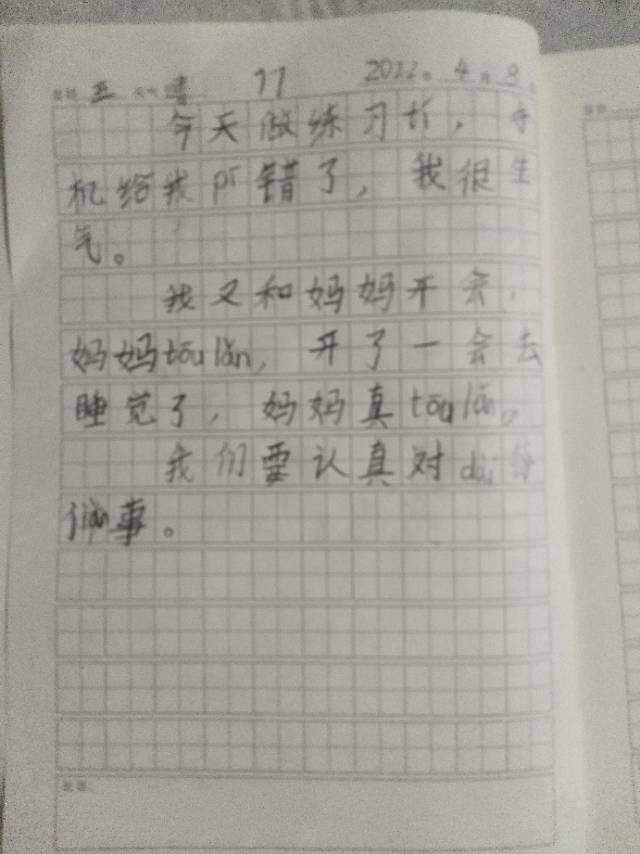 星期 五 天气 晴 11 2022年 4月 8日
今天做练习册，手
机给我pī错了，我很生
气。
我又和妈妈开会，
妈妈tōu lǎn，开了一会去
睡觉了，妈妈真tōu lǎn。
我们要认真对dài
jiàn事。